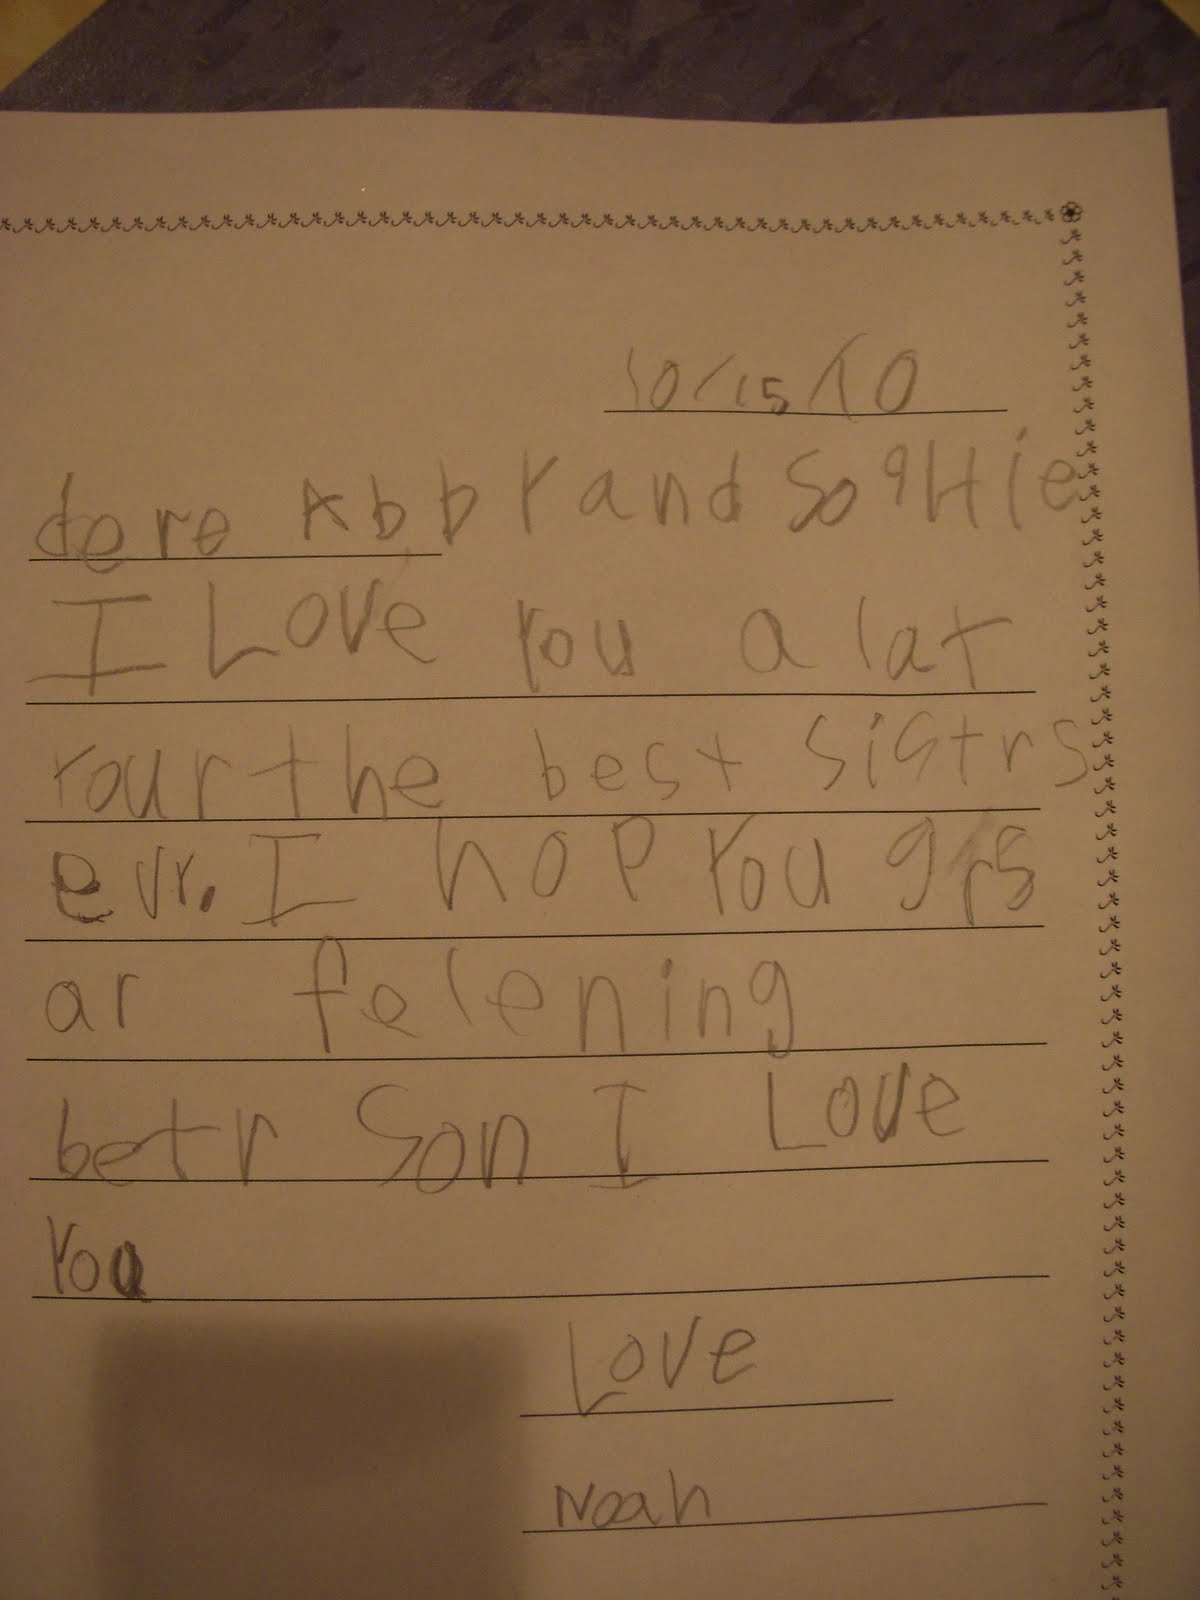 10/15/10
dere Abby and SoqHie
I Love you a lat
your the best sistrs
evr. I hop you grs
ar felening
betr Son I Love
you
Love
Noah